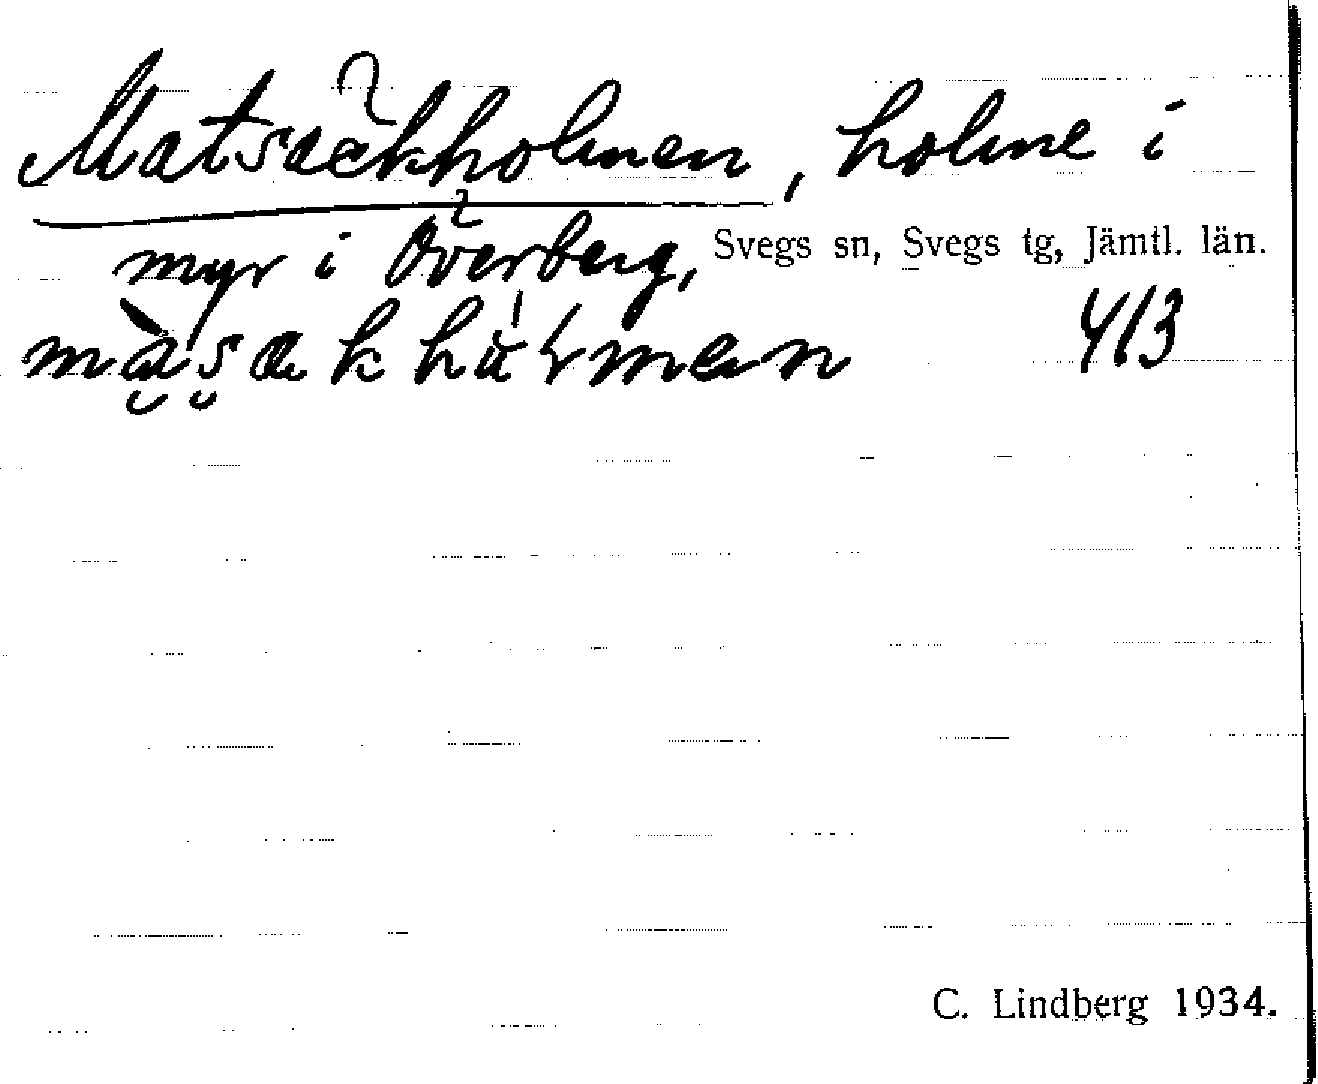 Matsäckholmen, holme i
myr i Överberg, Svegs sn, Svegs tg, Jämtl. län.
413
C. Lindberg 1934.